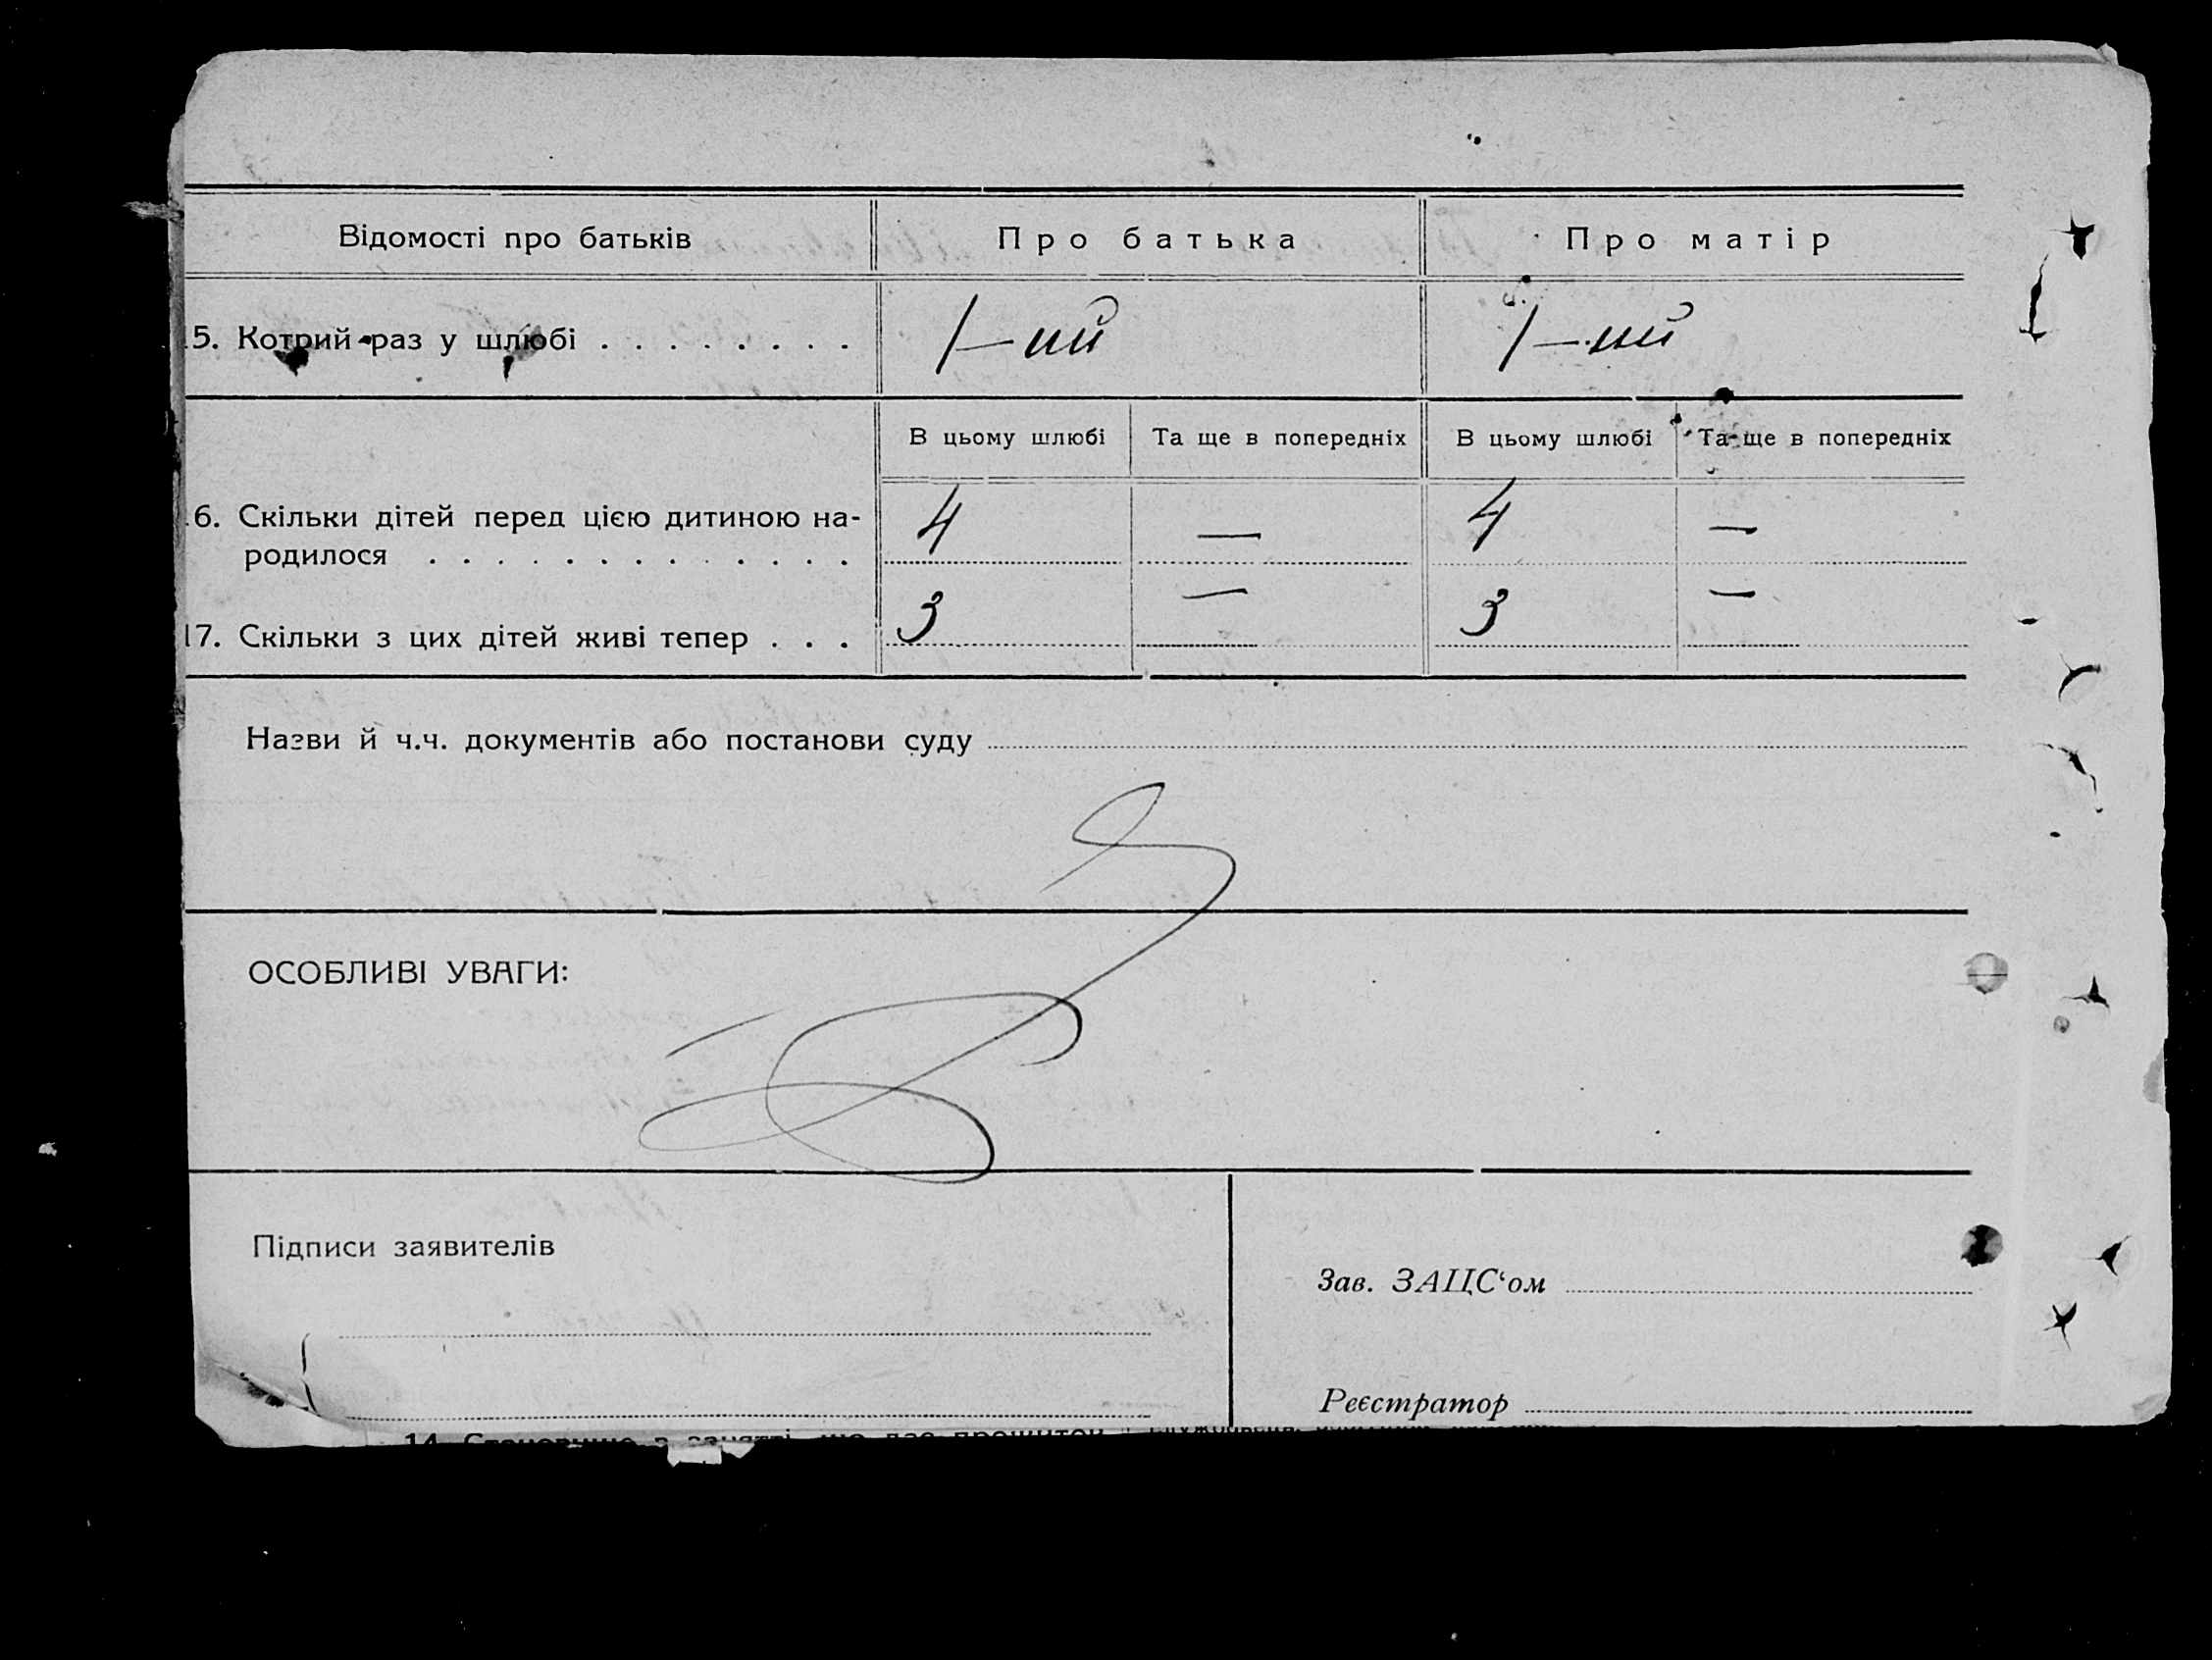 Відомості про батьків Про батька Про матір
15. Котрий раз у шлюбі . . . . . . . . 1-ий 1-ий
В цьому шлюбі Та ще в попередніх В цьому шлюбі Та ще в попередніх
16. Скільки дітей перед цією дитиною на- 4 — 4 —
родилося . . . . . . . . . . . . .
17. Скільки з цих дітей живі тепер . . . 3 — 3 —
Назви й ч.ч. документів або постанови суду
ОСОБЛИВІ УВАГИ:
Підписи заявителів
Зав. ЗАЦС‘ом
Реєстратор
14. Становище в занятті, що дає прожиток